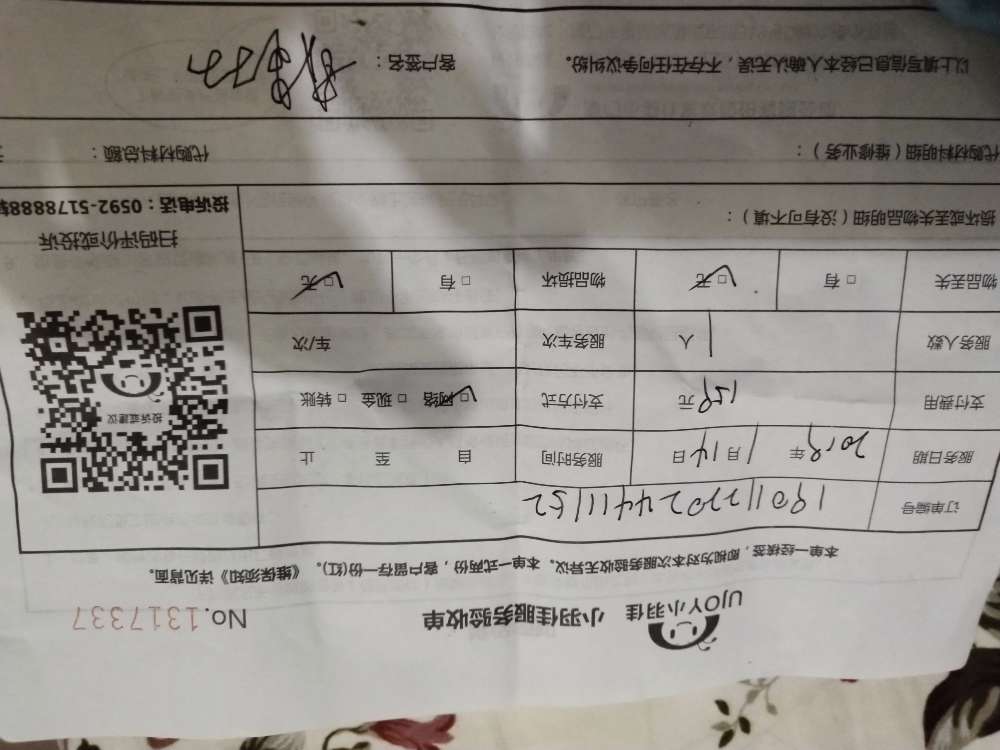 UJOY小羽佳 小羽佳服务验收单 No.1317337
本单一经核签，即视为对本次服务验收无异议。本单一式两份，客户留存一份(红)。《维保须知》详见背面。
订单编号 190112202441152
服务日期 2019年1月14日 服务时间 自 至 止
支付费用 159元 支付方式 □网络 □现金 □转账
服务人数 1人 服务车次 车/次
物品丢失 □有 □无 物品损坏 □有 □无
投诉或建议
扫码评价或投诉
投诉电话：0592-5178888转
损坏或丢失物品明细（没有可不填）：
代购材料明细（维修业务）： 代购材料总额：
以上填写信息已经本人确认无误，不存在任何争议纠纷。 客户签名：